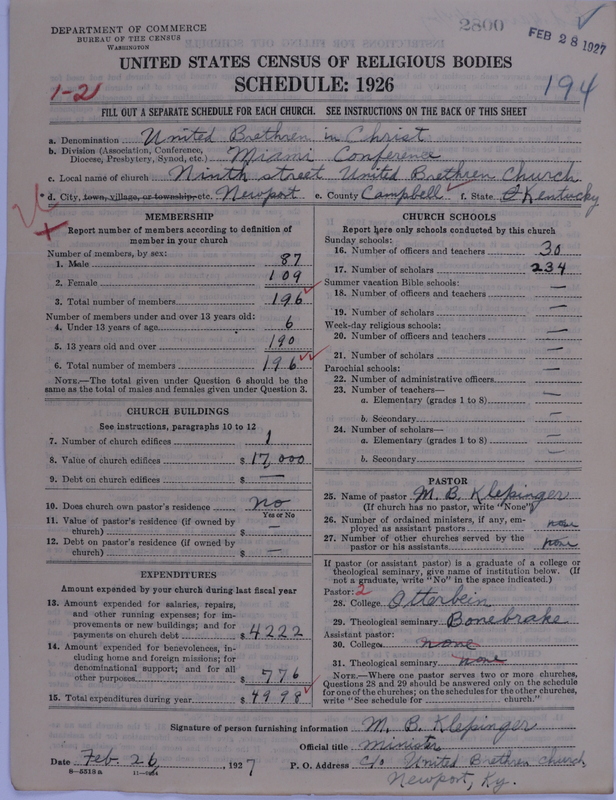 DEPARTMENT OF COMMERCE
BUREAU OF THE CENSUS
WASHINGTON
2800
FEB 28 1927
UNITED STATES CENSUS OF RELIGIOUS BODIES
SCHEDULE: 1926
1-21
194
FILL OUT A SEPARATE SCHEDULE FOR EACH CHURCH. SEE INSTRUCTIONS ON THE BACK OF THIS SHEET
a. Denomination United Brethren in Christ
b. Division (Association, Conference, Diocese, Presbytery, Synod, etc.) Miami Conference
c. Local name of church Ninth street United Brethren Church
* d. City, town, village, or township, etc. Newport e. County Campbell f. State Kentucky
MEMBERSHIP
Report number of members according to definition of member in your church
Number of members, by sex:
1. Male 87
2. Female 109
3. Total number of members 196
Number of members under and over 13 years old:
4. Under 13 years of age 6
5. 13 years old and over 190
6. Total number of members 196
NOTE.—The total given under Question 6 should be the same as the total of males and females given under Question 3.
CHURCH BUILDINGS
See instructions, paragraphs 10 to 12
7. Number of church edifices 1
8. Value of church edifices $ 17,000
9. Debt on church edifices $ —
10. Does church own pastor's residence No
Yes or No
11. Value of pastor's residence (if owned by church) $ —
12. Debt on pastor's residence (if owned by church) $ —
EXPENDITURES
Amount expended by your church during last fiscal year
13. Amount expended for salaries, repairs, and other running expenses; for improvements or new buildings; and for payments on church debt $ 4222
14. Amount expended for benevolences, including home and foreign missions; for denominational support; and for all other purposes $ 776
15. Total expenditures during year $ 4998
CHURCH SCHOOLS
Report here only schools conducted by this church
Sunday schools:
16. Number of officers and teachers 30
17. Number of scholars 234
Summer vacation Bible schools:
18. Number of officers and teachers —
19. Number of scholars —
Week-day religious schools:
20. Number of officers and teachers —
21. Number of scholars —
Parochial schools:
22. Number of administrative officers —
23. Number of teachers—
a. Elementary (grades 1 to 8) —
b. Secondary —
24. Number of scholars—
a. Elementary (grades 1 to 8) —
b. Secondary —
PASTOR
25. Name of pastor M. B. Klepinger
(If church has no pastor, write "None")
26. Number of ordained ministers, if any, employed as assistant pastors none
27. Number of other churches served by the pastor or his assistants none
If pastor (or assistant pastor) is a graduate of a college or theological seminary, give name of institution below. (If not a graduate, write "No" in the space indicated.)
Pastor: 2
28. College Otterbein
29. Theological seminary Bonebrake
Assistant pastor:
30. College none
31. Theological seminary none
NOTE.—Where one pastor serves two or more churches, Questions 28 and 29 should be answered only on the schedule for one of the churches; on the schedules for the other churches, write "See schedule for church."
Signature of person furnishing information M. B. Klepinger
Official title Minister
Date Feb. 26, 1927 P. O. Address c/o United Brethren church
Newport, Ky.
8—5518 a 11—9124